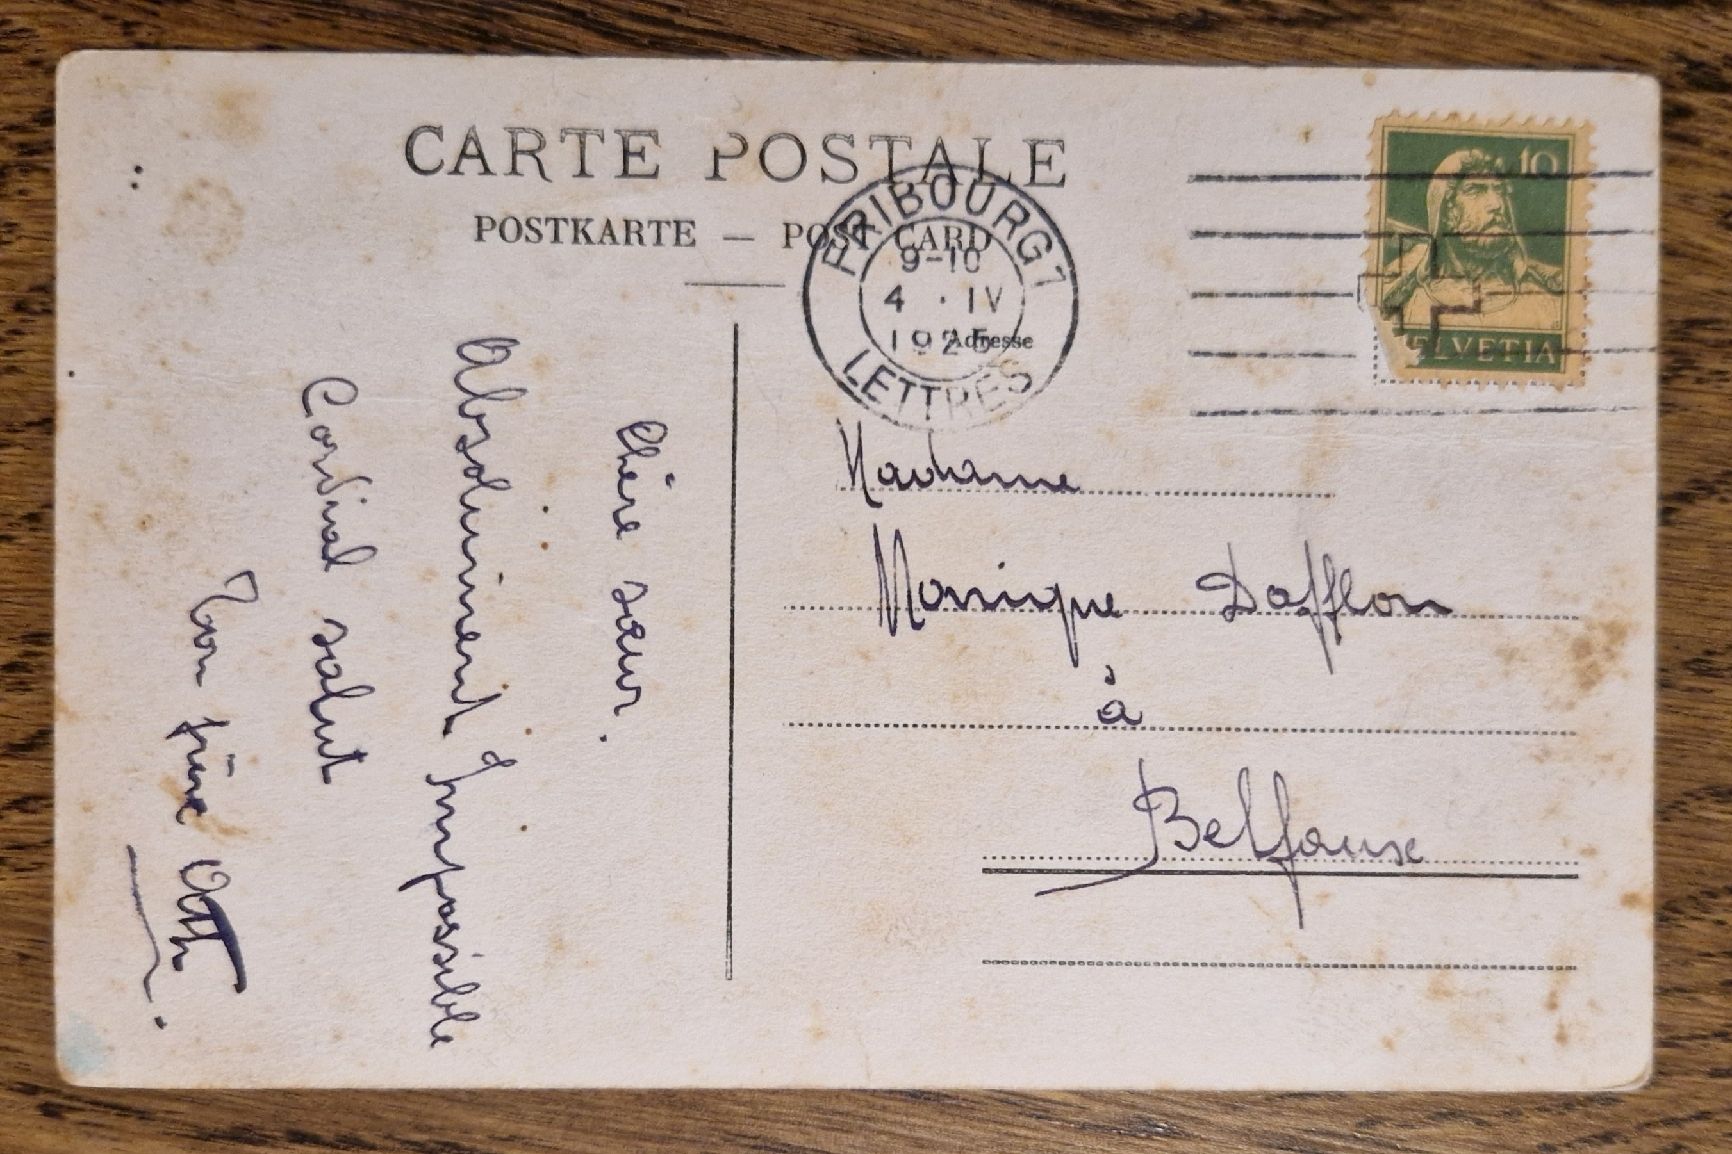 CARTE POSTALE
POSTKARTE — POST CARD
FRIBOURG 1
9-10
4 · IV
1925
LETTRES
Adresse
10
HELVETIA
Chère sœur.
Absolument Impossible
Cordial salut
Ton frère
Madame
Monique Dafflon
à
Belfaux